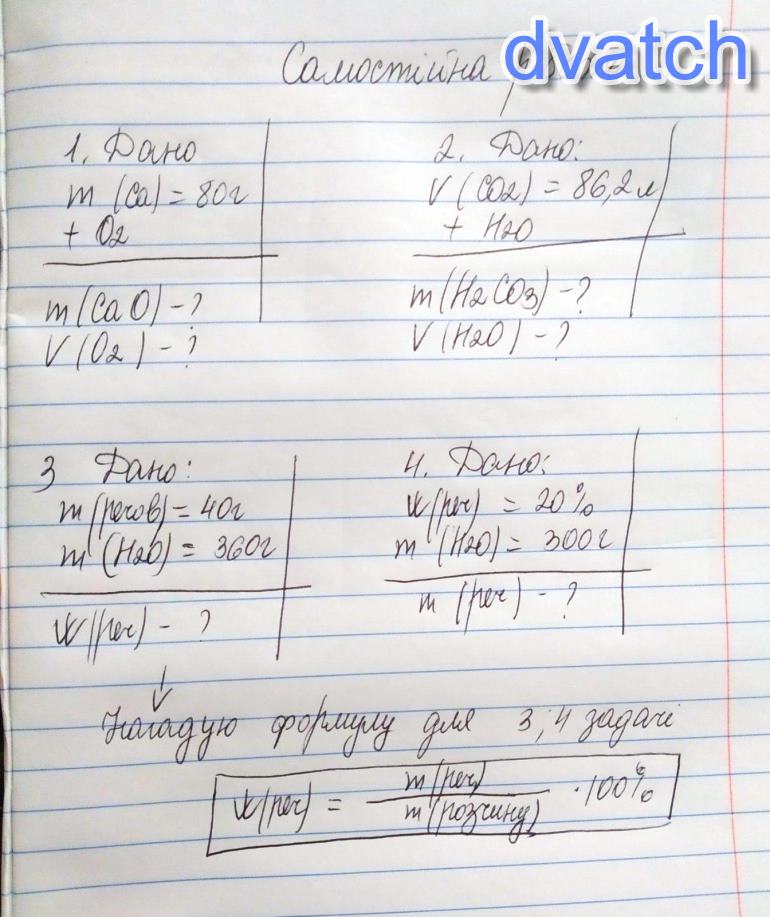 Самостійна
dvatch
1. Дано
m (Ca) = 80г
+ O2
m (CaO) - ?
V (O2) - ?
2. Дано:
V (CO2) = 86,2 л
+ H2O
m (H2CO3) - ?
V (H2O) - ?
3 Дано:
m (речов) = 40г
m (H2O) = 360г
W (реч) - ?
4. Дано:
W (реч) = 20%
m (H2O) = 300г
m (реч) - ?
Нагадую формулу для 3,4 задачі
W (реч) = m (реч) / m (розчину) · 100%